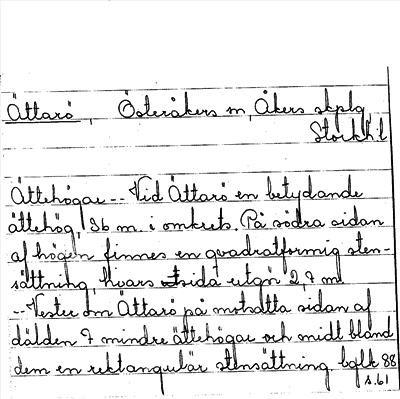 Ättarö, Österåkers sn, Åkers skplg
Stockh. l
Ättehögar -- Vid Ättarö en betydande
ättehög, 36 m. i omkrets. På södra sidan
af högen finnes en qvadratformig sten-
sättning, hvars sida utgör 2,7 m
-- Vester om Ättarö på motsatta sidan af
dälden 7 mindre ättehögar och midt bland
dem en rektangulär stensättning. 88
s. 61